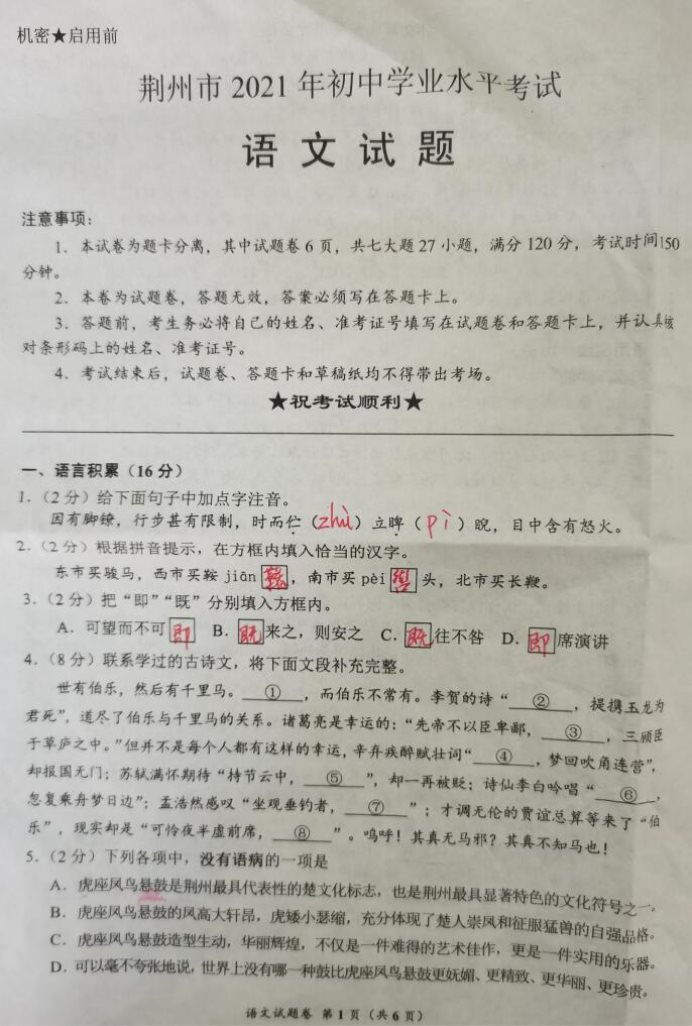 机密★启用前
荆州市 2021 年初中学业水平考试
语文试题
注意事项：
1．本试卷为题卡分离，其中试题卷 6 页，共七大题 27 小题，满分 120 分，考试时间150
分钟。
2．本卷为试题卷，答题无效，答案必须写在答题卡上。
3．答题前，考生务必将自己的姓名、准考证号填写在试题卷和答题卡上，并认真核
对条形码上的姓名、准考证号。
4．考试结束后，试题卷、答题卡和草稿纸均不得带出考场。
★祝考试顺利★
一、语言积累（16 分）
1．（2 分）给下面句子中加点字注音。
因有脚镣，行步甚有限制，时而伫（zhù）立睥（pì）睨，目中含有怒火。
2．（2 分）根据拼音提示，在方框内填入恰当的汉字。
东市买骏马，西市买鞍 jiān 鞯，南市买 pèi 辔 头，北市买长鞭。
3．（2 分）把“即”“既”分别填入方框内。
A．可望而不可 即 B．既 来之，则安之 C．既 往不咎 D．即 席演讲
4．（8 分）联系学过的古诗文，将下面文段补充完整。
世有伯乐，然后有千里马。 ① ，而伯乐不常有。李贺的诗“ ② ，提携玉龙为
君死”，道尽了伯乐与千里马的关系。诸葛亮是幸运的：“先帝不以臣卑鄙， ③ ，三顾臣
于草庐之中。”但并不是每个人都有这样的幸运，辛弃疾醉赋壮词“ ④ ，梦回吹角连营”，
却报国无门；苏轼满怀期待“持节云中， ⑤ ”，却一再被贬；诗仙李白吟唱“ ⑥ ，
忽复乘舟梦日边”；孟浩然感叹“坐观垂钓者， ⑦ ”；才调无伦的贾谊总算等来了“伯
乐”，现实却是“可怜夜半虚前席， ⑧ ”。呜呼！其真无马邪？其真不知马也！
5．（2 分）下列各项中，没有语病的一项是
A．虎座凤鸟悬鼓是荆州最具代表性的楚文化标志，也是荆州最具显著特色的文化符号之一。
B．虎座凤鸟悬鼓的凤高大轩昂，虎矮小瑟缩，充分体现了楚人崇凤和征服猛兽的自强品格。
C．虎座凤鸟悬鼓造型生动，华丽辉煌，不仅是一件难得的艺术佳作，更是一件实用的乐器。
D．可以毫不夸张地说，世界上没有哪一种鼓比虎座凤鸟悬鼓更妩媚、更精致、更华丽、更珍贵。
语文试题卷 第 1 页（共 6 页）